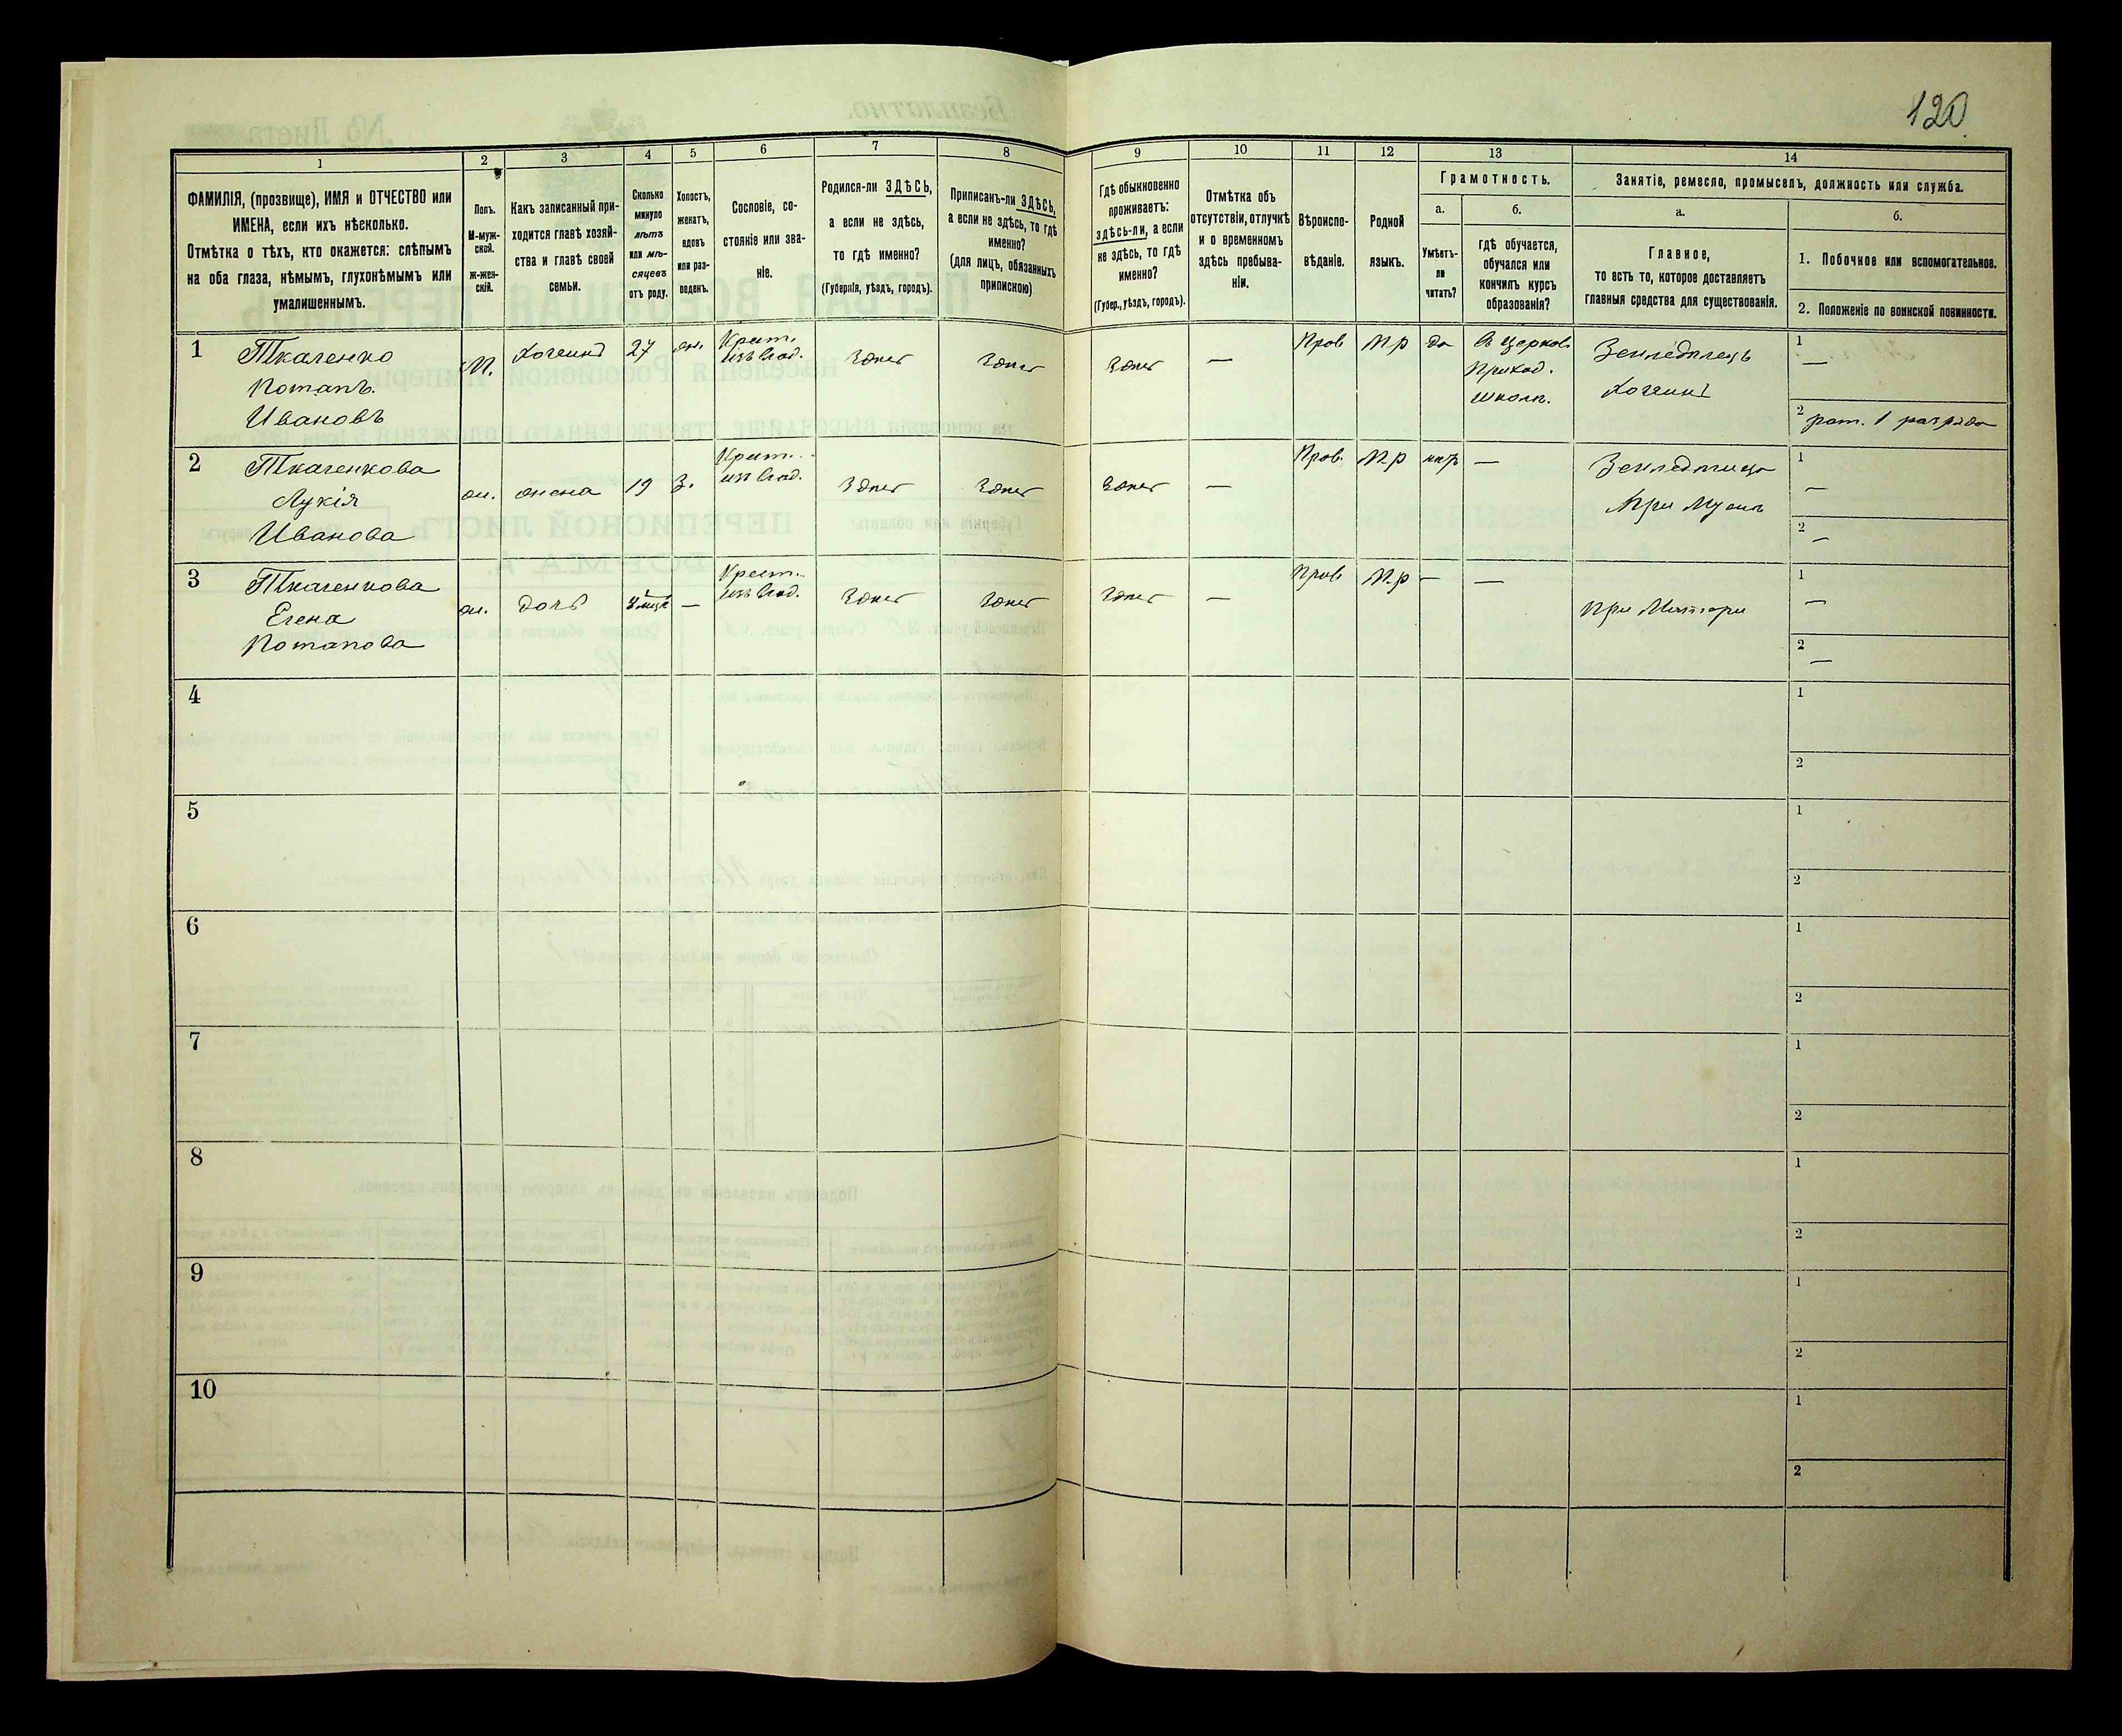 120
1
2
3
4
5
6
7
8
9
10
11
12
13
14
ФАМИЛІЯ, (прозвище), ИМЯ и ОТЧЕСТВО или
ИМЕНА, если ихъ нѣсколько.
Отмѣтка о тѣхъ, кто окажется: слѣпымъ
на оба глаза, нѣмымъ, глухонѣмымъ или
умалишеннымъ.
Полъ.
М-муж-
ской.
Ж-жен-
скій.
Какъ записанный при-
ходится главѣ хозяй-
ства и главѣ своей
семьи.
Сколько
минуло
лѣтъ
или мѣ-
сяцевъ
отъ роду.
Холостъ,
женатъ,
вдовъ
или раз-
веденъ.
Сословіе, со-
стояніе или зва-
ніе.
Родился-ли ЗДѢСЬ,
а если не здѣсь,
то гдѣ именно?
(Губернія, уѣздъ, городъ).
Приписанъ-ли ЗДѢСЬ,
а если не здѣсь, то гдѣ
именно?
(для лицъ, обязанныхъ
припискою)
Гдѣ обыкновенно
проживаетъ:
здѣсь-ли, а если
не здѣсь, то гдѣ
именно?
(Губер., уѣздъ, городъ).
Отмѣтка объ
отсутствіи, отлучкѣ
и о временномъ
здѣсь пребыва-
ніи.
Вѣроиспо-
вѣданіе.
Родной
языкъ.
Грамотность.
а.
Умѣетъ-
ли
читать?
б.
гдѣ обучается,
обучался или
кончилъ курсъ
образованія?
Занятіе, ремесло, промыселъ, должность или служба.
а.
Главное,
то есть то, которое доставляетъ
главныя средства для существованія.
б.
1. Побочное или вспомогательное.
2. Положеніе по воинской повинности.
1
Ткаченко
Потапъ
Ивановъ
М.
Хозяинъ
27
жн.
Крест.
изъ влад.
Здѣсь
Здѣсь
Здѣсь
—
Прав.
М.р
да
В церков.
Приход.
школѣ.
Земледѣлецъ
Хозяинъ
1
—
2 рат. 1 разряда
2
Ткаченкова
Лукія
Иванова
ж.
жена
19
з.
Крест.
изъ влад.
Здѣсь
Здѣсь
Здѣсь
—
Прав.
М.р
нѣтъ
—
При мужѣ
1
—
2
—
3
Ткаченкова
Елена
Потапова
ж.
дочь
—
Крест.
изъ влад.
Здѣсь
Здѣсь
Здѣсь
—
Прав.
М.р
—
—
При Матери
1
—
2
—
4
1
2
5
1
2
6
1
2
7
1
2
8
1
2
9
1
2
10
1
2